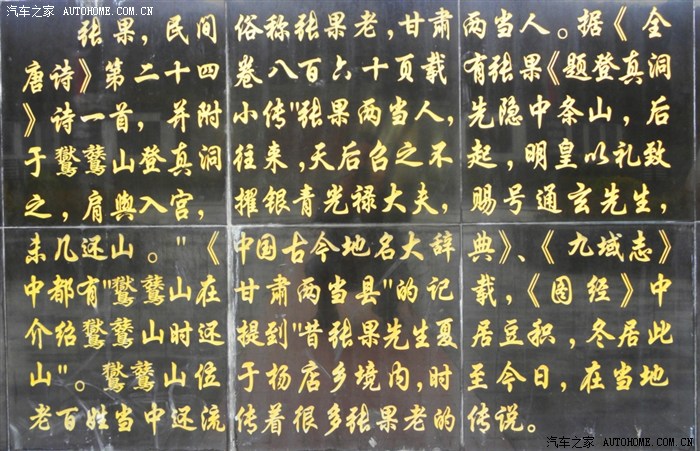 汽车之家 AUTOHOME.COM.CN
张果，民间俗称张果老，甘肃两当人。据《全
唐诗》第二十四卷八百六十页载有张果《题登真洞
》诗一首，并附小传"张果两当人，先隐中条山，后
于鸑鷟山登真洞往来，天后召之不起，明皇以礼致
之，肩舆入宫，擢银青光禄大夫，赐号通玄先生，
未几还山。"《中国古今地名大辞典》、《九域志》
中都有"鸑鷟山在甘肃两当县"的记载，《图经》中
介绍鸑鷟山时还提到"昔张果先生夏居豆积，冬居此
山"。鸑鷟山位于杨店乡境内，时至今日，在当地
老百姓当中还流传着很多张果老的传说。
汽车之家 AUTOHOME.COM.CN